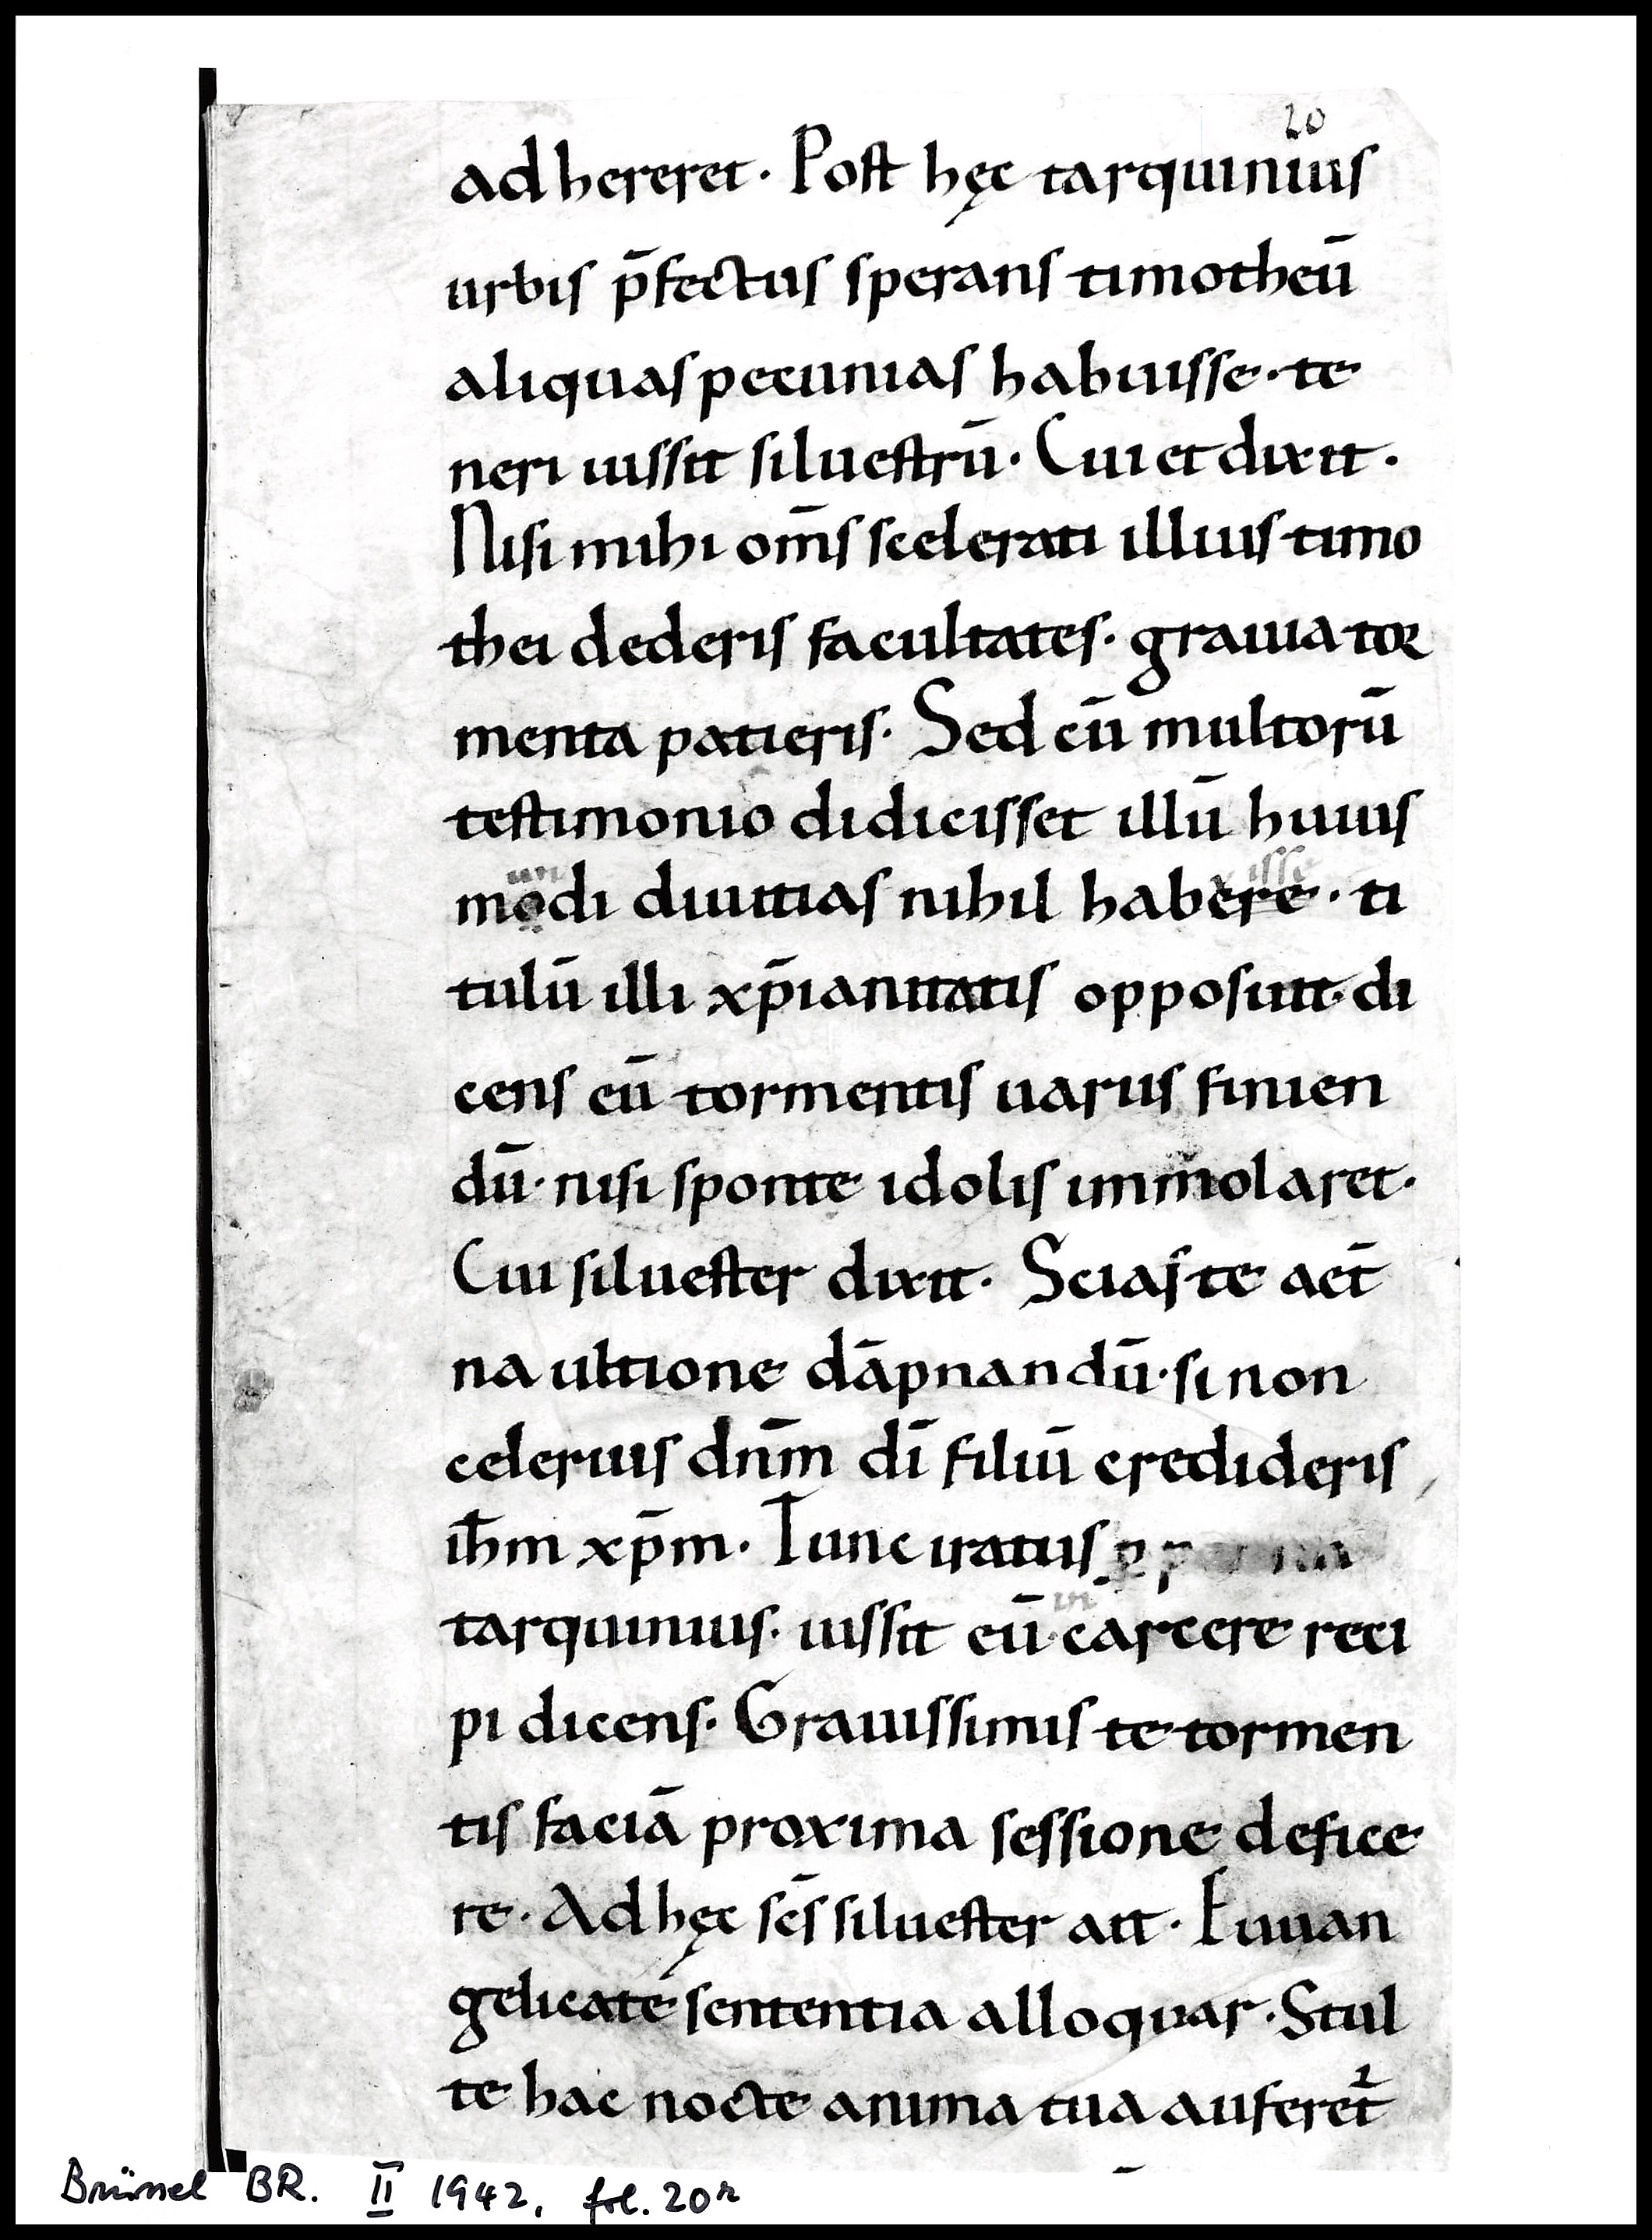 20
adhereret· Post hęc tarquinius
urbis p̄fectus sperans timotheū
aliquas pecunias habuisse· te
neri iussit siluestrū· Cui et dixit·
Nisi mihi om̄s scelerati illius timo
thei dederis facultates· grauia tor
menta patieris· Sed cū multorū
testimonio didicisset illū huius
modi diuitias nihil habere· ti
tulū illi xp̄ianitatis opposuit· di
cens eū tormentis uariis finien
dū· nisi sponte idolis immolaret·
Cui siluester dixit· Scias te aet̄
na ultione dāpnandū· si non
celerius dn̄m dī filiū credideris
ih̄m xp̄m· Tunc iratus
in
tarquinius· iussit eū carcere reci
pi dicens· Grauissimis te tormen
tis faciā proxima sessione defice
re· Ad hęc sc̄s siluester ait· Euuan
gelica te sententia alloquar· Stul
te hac nocte anima tua auferet᷑
Brüssel BR. II 1942, fol. 20r